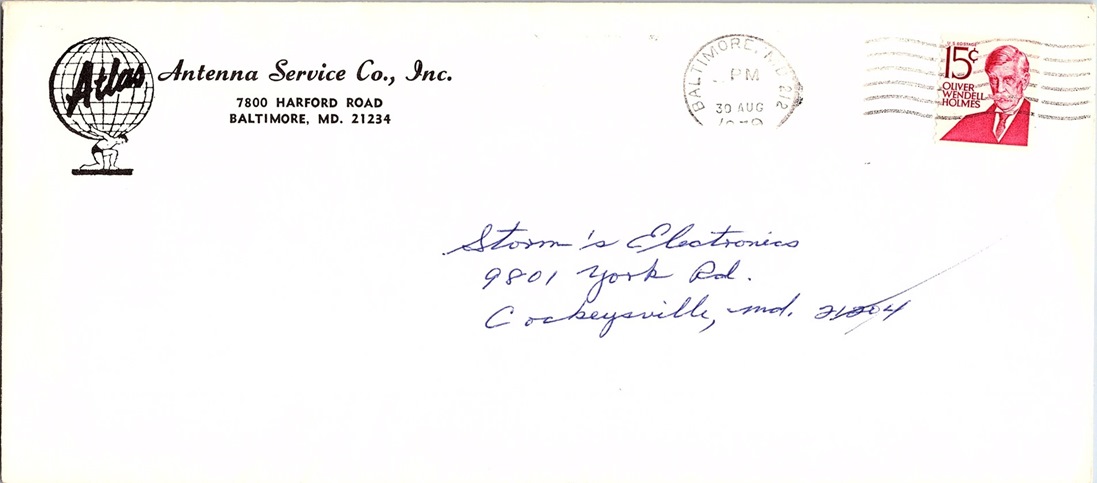 Atlas Antenna Service Co., Inc.
7800 HARFORD ROAD
BALTIMORE, MD. 21234
BALTIMORE, MD 212
PM
30 AUG
U.S. POSTAGE
15¢
OLIVER
WENDELL
HOLMES
Storm's Electronics
9801 York Rd.
Cockeysville, Md.